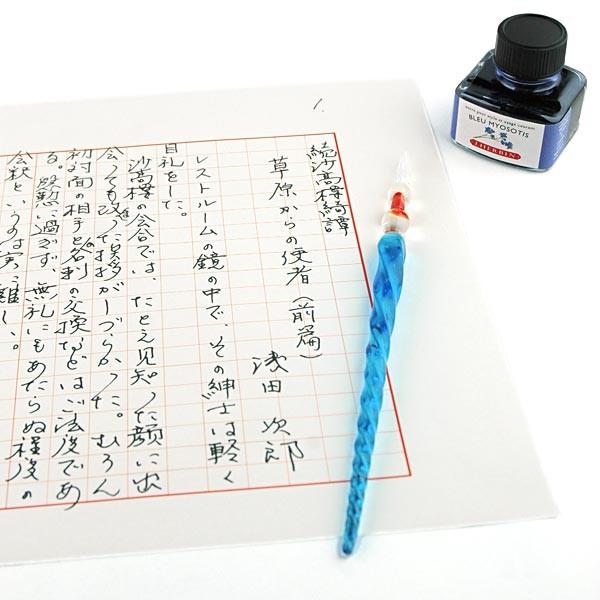 1.
続沙高樓綺譚
草原からの使者（前篇）
浅田次郎
レストルームの鏡の中で、その紳士は軽く
目礼をした。
沙高樓の会合では、たとえ見知った顔に出
会っても改った挨拶がしづらかった。むろん
初対面の相手と名刺の交換などはご法度であ
る。慇懃に過ぎず、無礼にもあたらぬ程度の
会釈というのは実に難しい。
BLEU MYOSOTIS
J. HERBIN